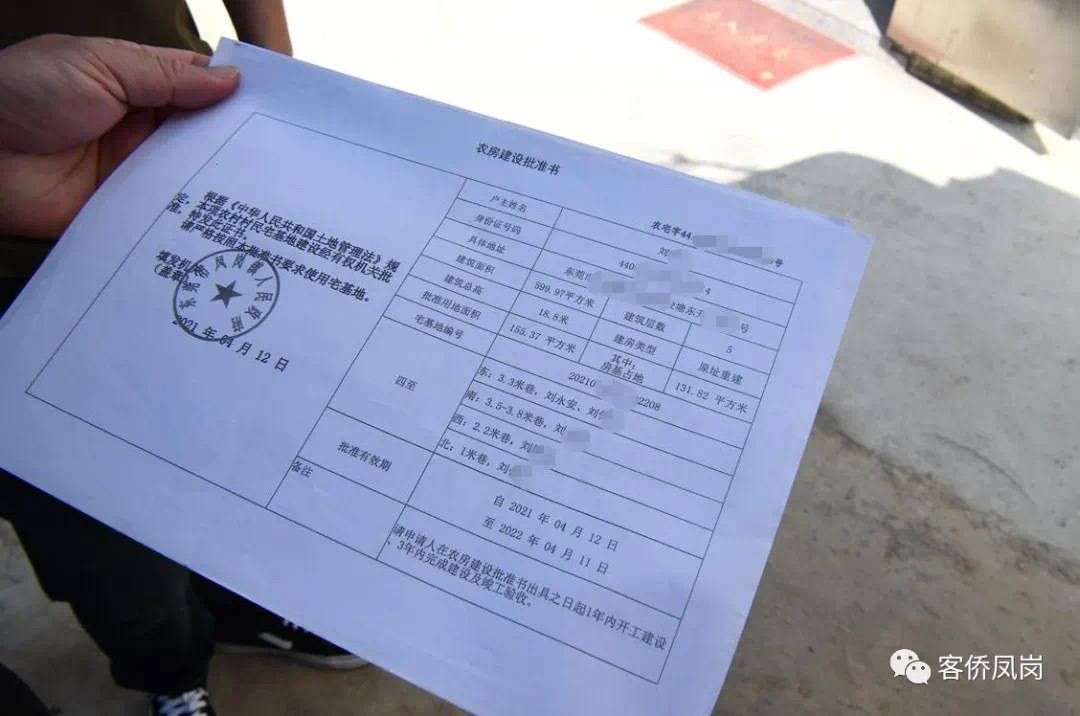 农房建设批准书
农宅字44 号
根据《中华人民共和国土地管理法》规
定，本项农村村民宅基地建设经有权机关批
准，特发此证书。
请严格按照本批准书要求使用宅基地。
填发机关
（盖章）
凤岗镇人民政府
2021 年 04 月 12 日
户主姓名 刘
身份证号码 440 4
具体地址 东莞 塘东 号
建筑面积 599.97平方米 建筑层数 5
建筑总高 18.8米 建房类型 原址重建
批准用地面积 155.37 平方米 其中：房基占地 131.82 平方米
宅基地编号 20210 2208
四至
东：3.3米巷，刘永安、刘
南：3.5-3.8米巷，刘
西：2.2米巷，刘
北：1米巷，刘
批准有效期 自 2021 年 04 月 12 日
至 2022 年 04 月 11 日
备注 请申请人在农房建设批准书出具之日起1年内开工建设
、3年内完成建设及竣工验收。
客侨凤岗